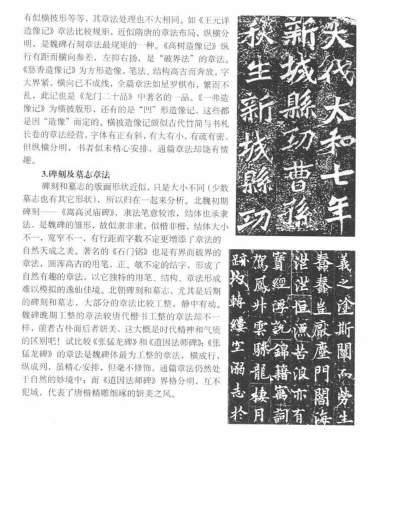 有似横披形等等，其章法处理也不大相同。如《王元详
造像记》章法比较规矩，近似隋唐的章法布局，纵横分
明，是魏碑石刻章法最规矩的一种。《高树造像记》纵
行有距而横向参差，左掉右扬，是“破界法”的章法。
《慈香造像记》为方形造像，笔法、结构高古而奔放，字
大界紧，横向已不成线，全篇章法如星罗棋布，繁而不
乱，此记也是《龙门二十品》中著名的一品。《一弗造
像记》为横披版形，还有的是“凹”形造像记，这些都
是因“造像”而定的。横披造像记颇似古代竹简与书札
长卷的章法经营，字体有正有斜，有大有小，有疏有密，
但纵横分明，书者似未精心安排，通篇章法却饶有情
趣。
3.碑刻及墓志章法
碑刻和墓志的版面形状近似，只是大小不同（少数
墓志也有其它形状），所以归在一起来分析。北魏初期
碑刻——《嵩高灵庙碑》，隶法笔意较浓，结体也承隶
法，是魏碑的雏形，故似隶非隶，似楷非楷，结体大小
不一，宽窄不一，有行距而字数不定更增添了章法的
自然天成之美。著名的《石门铭》也是有界而破界的
章法，浑浑高古的用笔，正、敧不定的结字，形成了
自然有趣的章法，以它独特的用笔、结构、章法形成
难以模拟的逸仙佳境。北朝碑刻和墓志，尤其是后期
的碑刻和墓志，大部分的章法比较工整，静中有动。
魏碑晚期工整的章法较唐代楷书工整的章法却不一
样，前者古朴而后者妍美，这大概是时代精神和气质
的区别吧！试比较《张猛龙碑》和《道因法师碑》：《张
猛龙碑》的章法是魏碑体最为工整的章法，横成行，
纵成列，虽精心安排，但毫不修饰，通篇章法仍然处
于自然的妙境中；而《道因法师碑》界格分明，互不
犯域，代表了唐楷精雕细琢的妍美之风。
大代太和七年
新城縣功曹孫
秋生新城縣功
義逢斯闡而勞生
蠢蠢並厭塵門闇海
茫茫恒漂苦浪亦有
寶經浮說錦籍寓詞
駕鳳升雲驂龍棲月